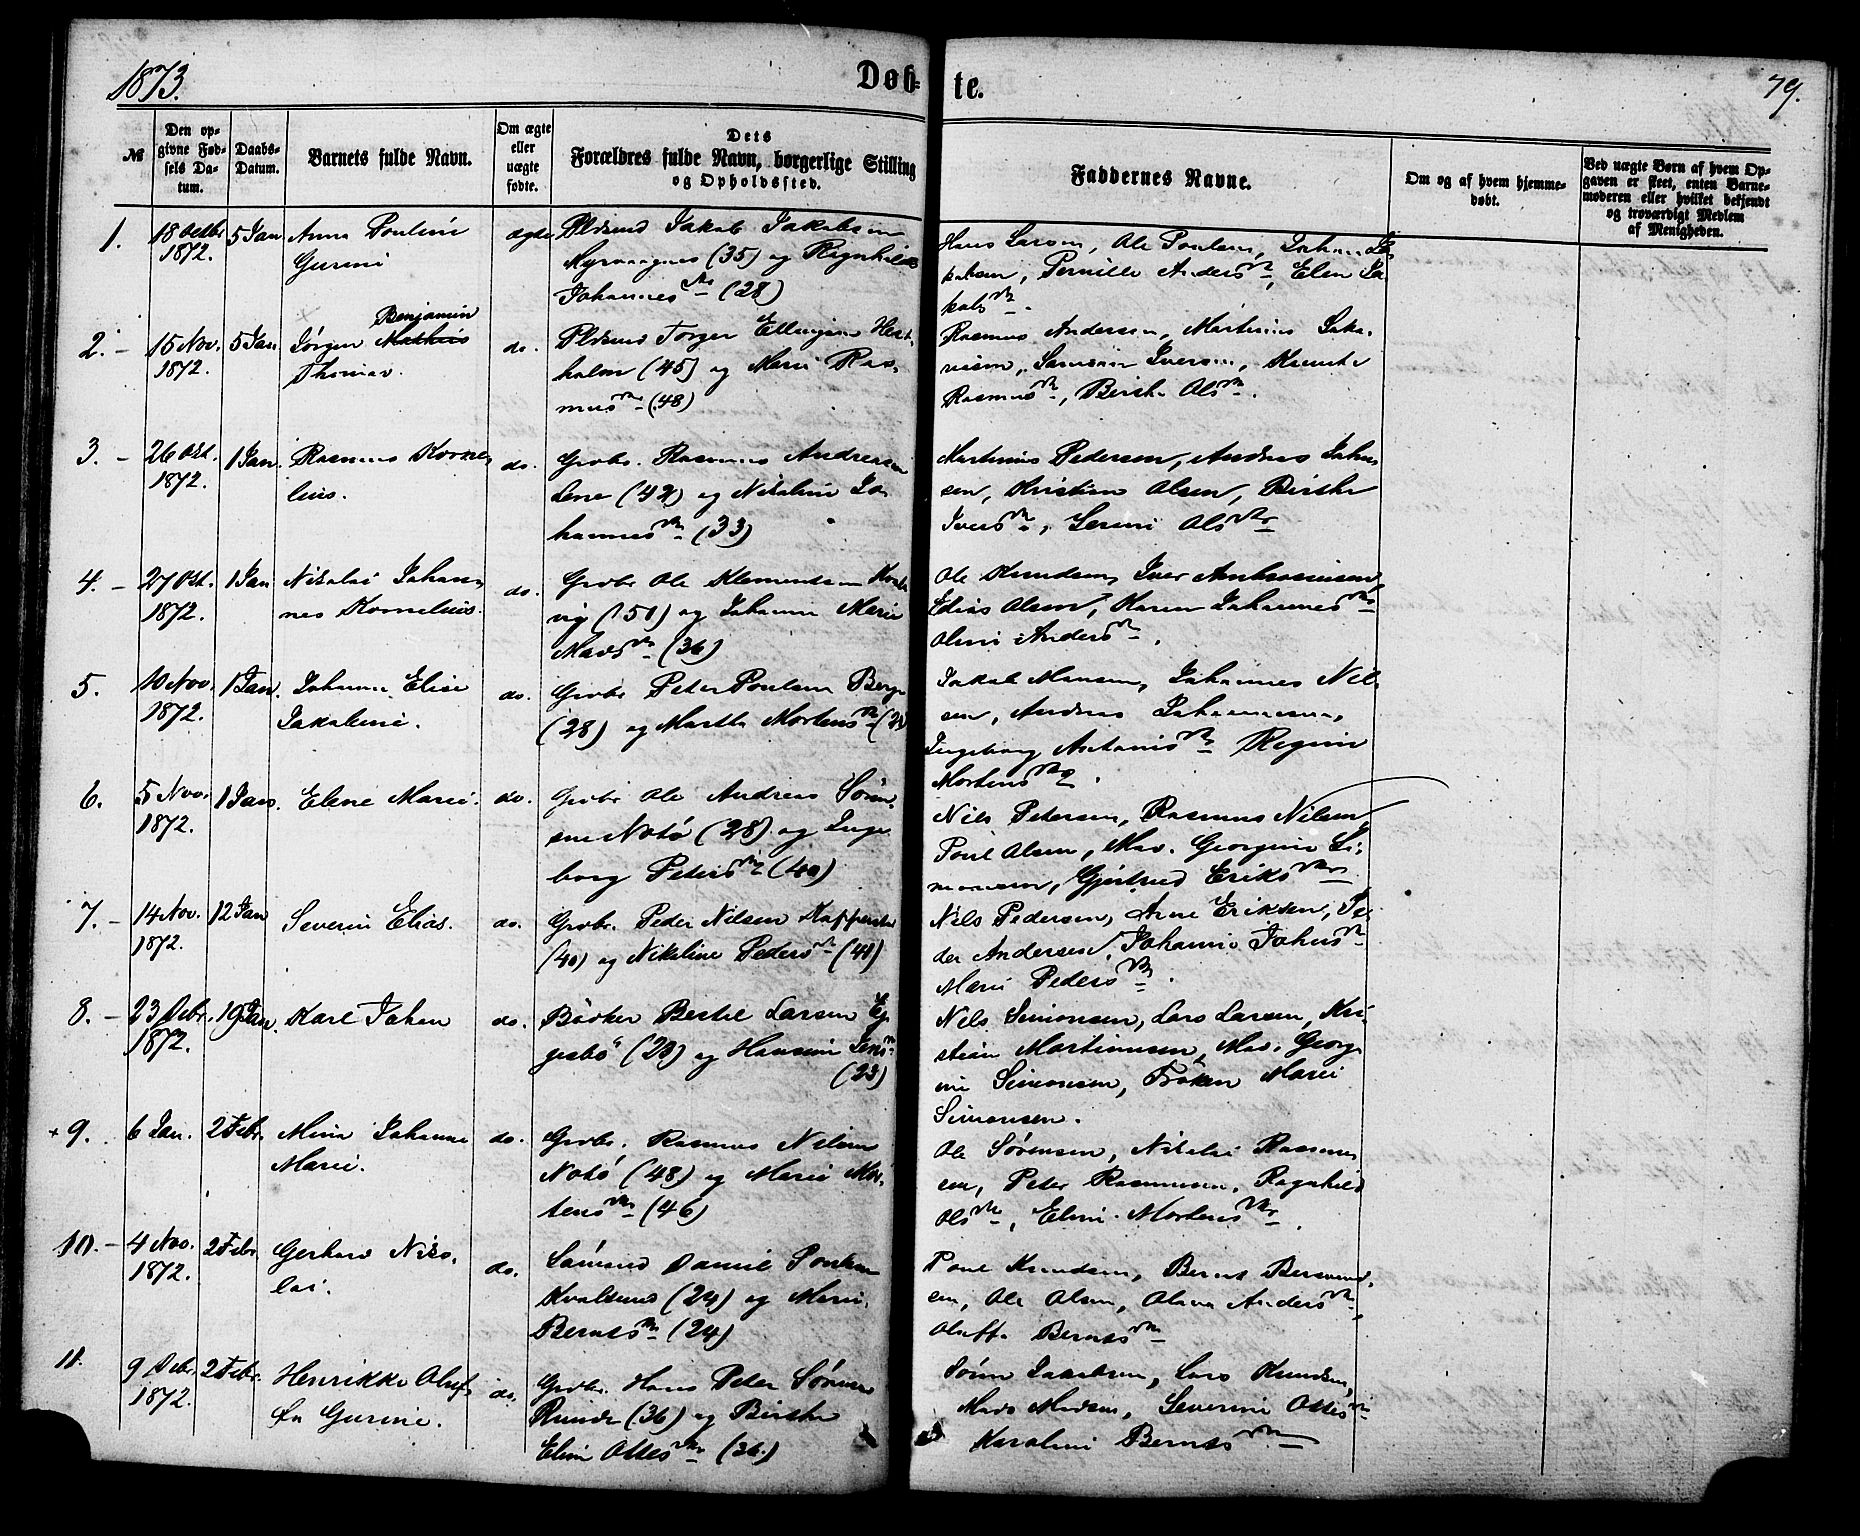 1873.
Døb-
te.
79.
№
Den op-
givne Fød-
sels Da-
tum.
Daabs-
Datum.
Barnets fulde Navn.
Om ægte
eller
uægte
fødte.
Dets
Forældres fulde Navn, borgerlige Stilling
og Opholdssted.
Faddernes Navne.
Om og af hvem hjemme-
døbt.
Ved uægte Børn af hvem Op-
gaven er skeet, enten Barne-
moderen eller hvilket bekjendt
og troværdigt Medlem
af Menigheden.
1.
18 Octbr
1872.
5 Jan
Anna Pouline
Gurine
ægte
Pldsmd Jakob Jakobsen
(35) og Ragnhild
Johannes (28)
Hans Larsen, Ole Poulsen, Johan Ja-
kobsen, Pernille Anders, Elen Ja-
kobs
2. -
15 Nov.
1872.
5 Jan
Benjamin
Jørgen Mathias
Thomas.
do.
Pldsmd Torger Ellingsen Hest-
holm (45) og Marie Ras-
mus (48)
Rasmus Andersen, Martinus
Iversen,
Rasmus, Birthe Ols.
3. -
26 Okt.
1872.
1 Jan.
Rasmus Korne-
lius.
do.
Grbr. Rasmus Andreasen
(42) og Nikoline Jo-
hannes (33)
Martinus Pedersen, Andreas Johan-
sen, Kristian Olsen, Birthe
Ivers, Serine Ols
4. -
27 Okt.
1872.
1 Jan
Nikolai Johan-
nes Kornelius.
do.
Grbr Ole Klemendsen
vig (50) og Johanne Marie
Mads (36)
Ole Knudsen, Iver Ambrosiussen,
Elias Olsen, Karen Johannes
Oline Anders.
5.
10 Nov.
1872.
1 Jan.
Johanne Elise
Jakobine.
do.
Grbr Peter Poulsen Berge
(28) og Marthe Mortens
Jakob Hansen, Johannes Niel-
sen, Andreas Johannessen,
Ingeborg Antonis Regine
Mortens.
6.
5 Nov.
1872.
1 Jan.
Elene Marie.
do.
Grbr Ole Andreas Søren-
sen Notø (28) og Inge-
borg Peters (40)
Nils Petersen, Rasmus Nilsen
Poul Olsen, Mad. Georgine Si-
monsen, Gjertrud Eriks
7. -
14 Nov.
1872.
12 Jan
Severin Elias.
do.
Grbr. Peder Nilsen
(40) og Nikoline Peders (40)
Nils Pedersen, Arne Eriksen, Pe-
der Andersen, Johanne Johns
Marie Peders.
8. -
23 Debr.
1872.
19 Jan.
Karl Johan
do.
Bødker Bertel Larsen Eg-
gesbø (28) og Hansine Jens
(23)
Nils Simonsen, Lars Larsen, Kri-
stian Martinussen, Mad. Georg-
ine Simonsen, Frøken Marie
Simonsen.
+ 9.
6 Jan.
2 Febr.
Mina Johanne
Marie.
do.
Grbr. Rasmus Nilsen
Notø (48) og Marie Mor-
tens (46)
Ole Sørensen, Nikolai Rasmus-
sen, Peter Rasmussen, Ragnhild
Ols, Eline Mortens.
10. -
4 Nov.
1872.
2 Febr.
Gerhard Niko-
lai.
do.
Daniel Poulsen
Kvalsund (24) og Marie
Bernts (24)
Poul Knudsen, Bernt
sen, Ole Olsen, Olava Anders,
Oluffa Bernts
11.
9 Debr.
1872.
2 Febr.
Henrikke Oluf-
fa Gurine.
do.
Grbr. Hans Peter Sørensen
Runde (36) og Birthe
Eline Ottes (36.)
Søren Jakobsen, Lars Knudsen,
Mads Madsen, Severine Ottes
Karoline Bernts